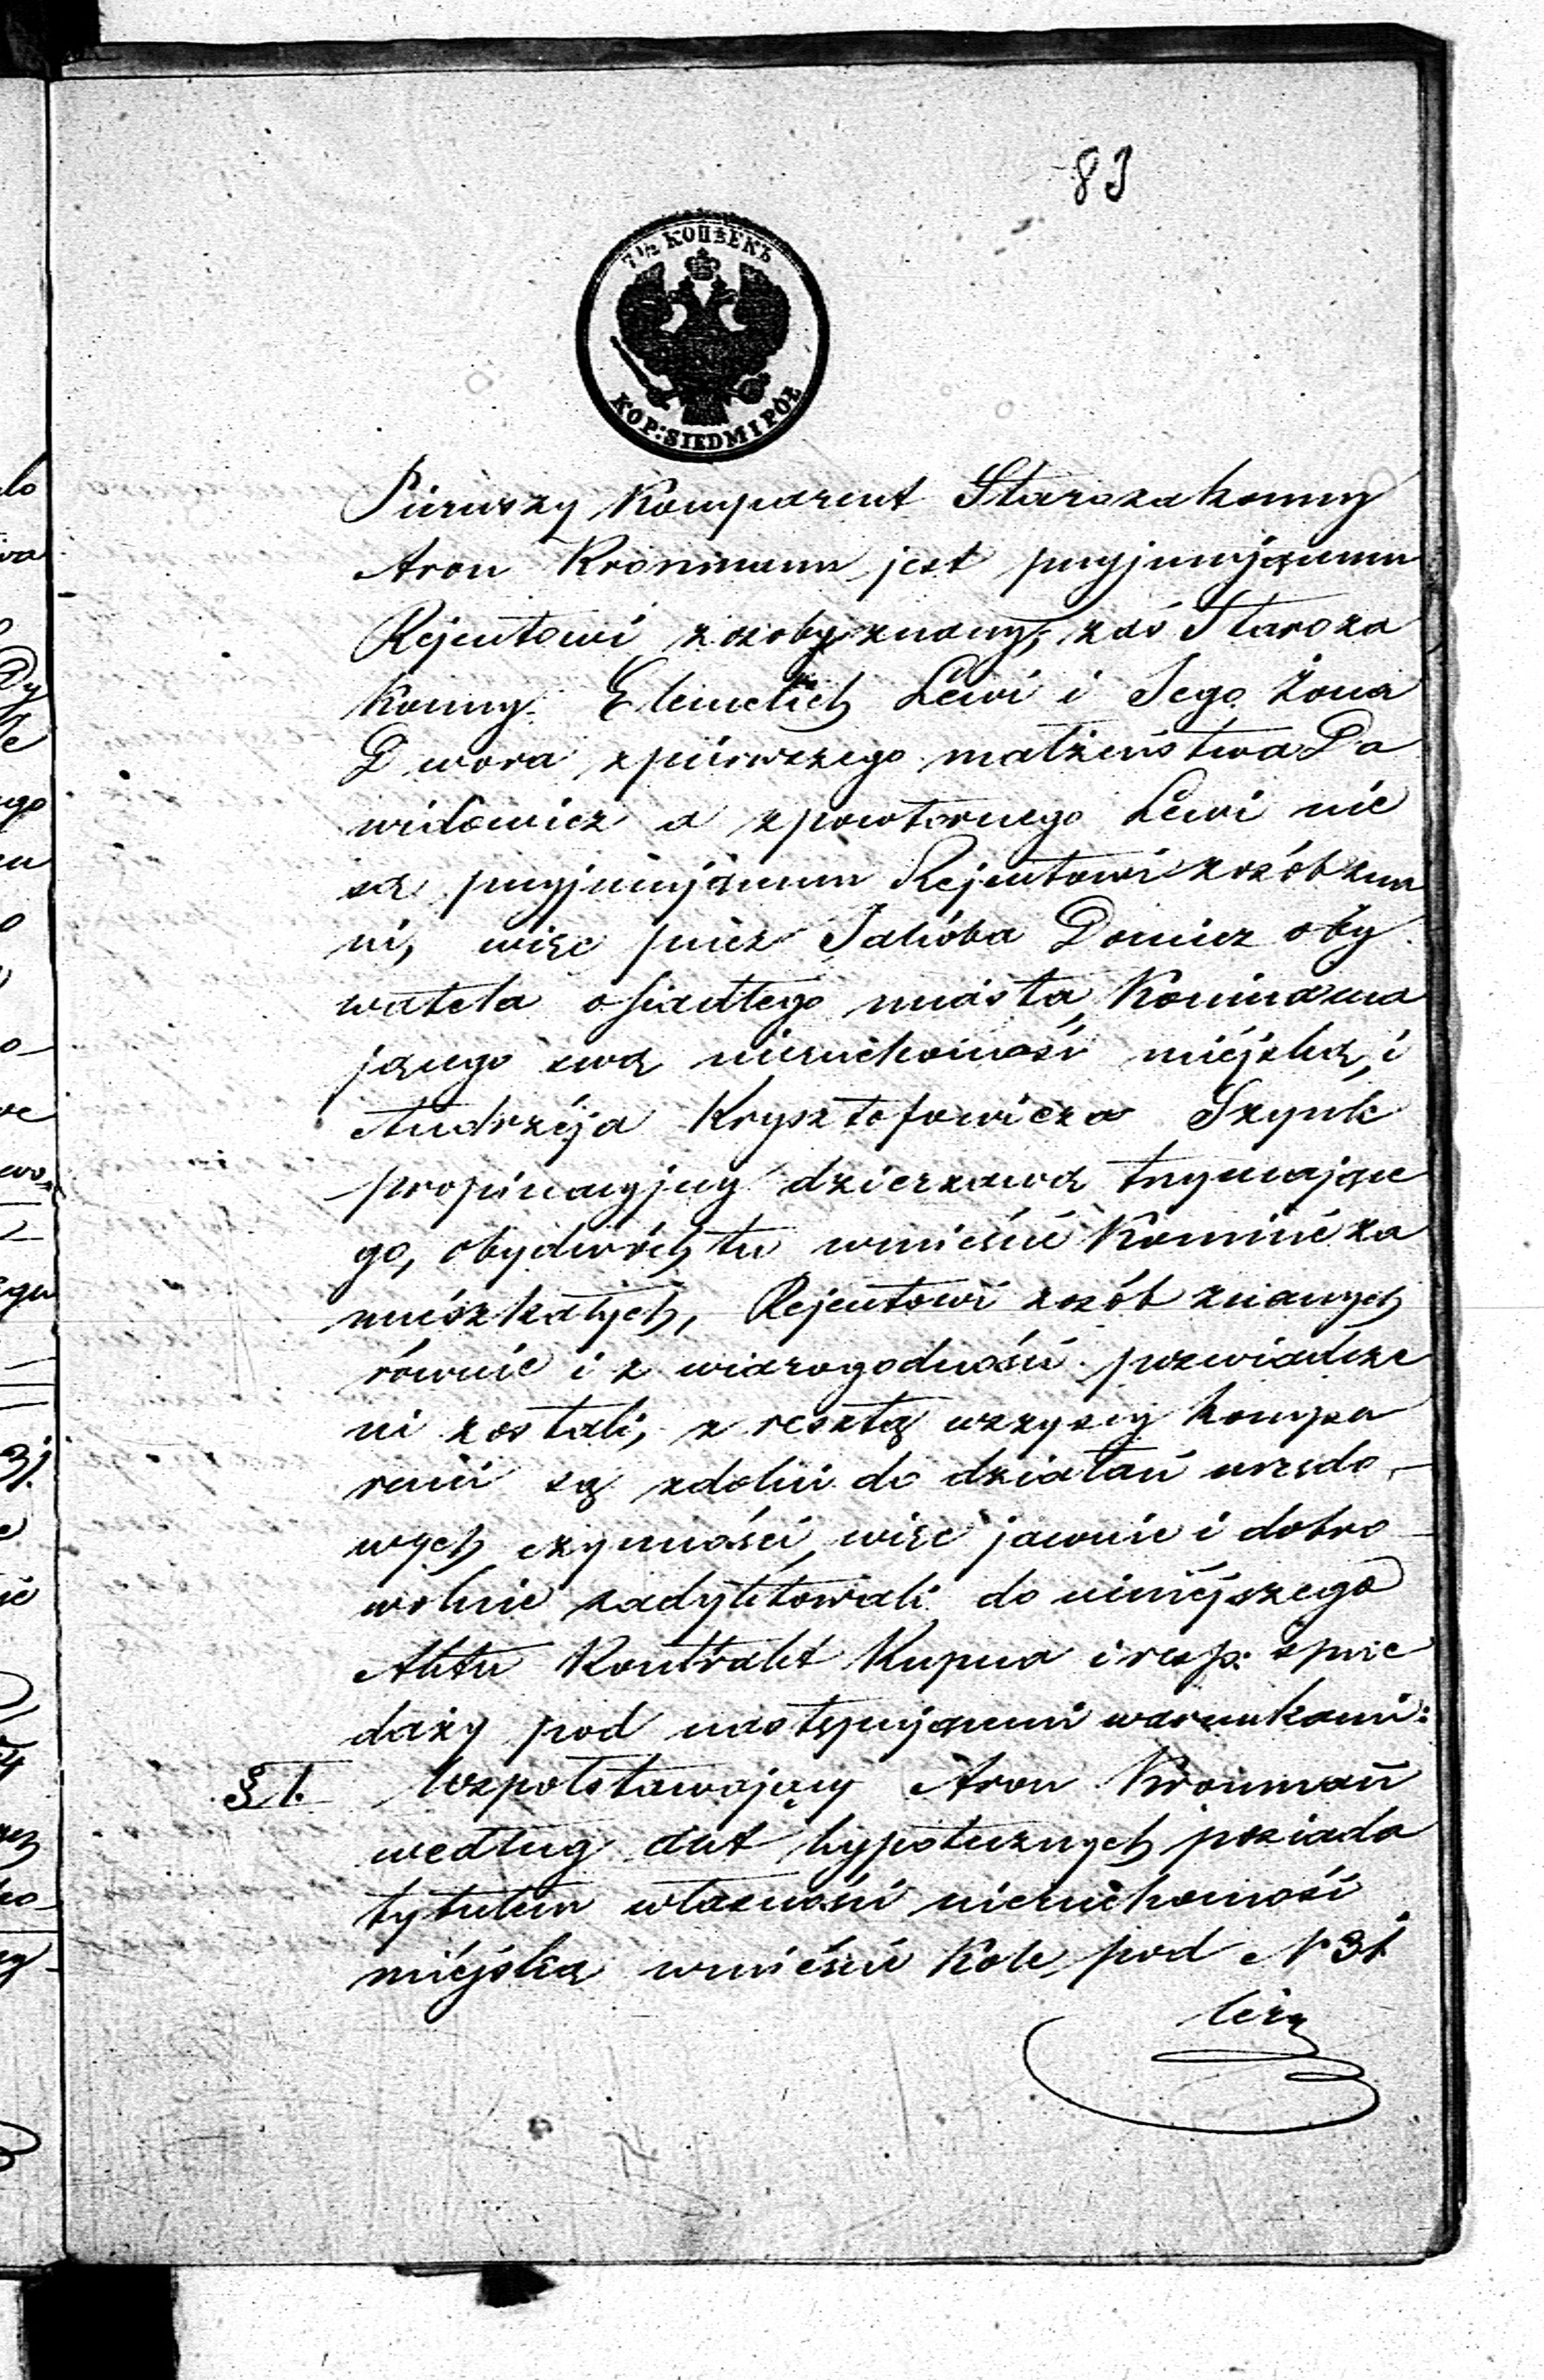 83
7½ КОПѢЕКЪ
KOP: SIEDM I PÓŁ
Pierwszy Komparent Starozakonny
Aron Kronmann jest przyjmującemu
Rejentowi z osoby znany, zaś Staroza
konny Elemelich Lewi i Jego żona
Dwora zpierwszego małżeństwa Da
widowicz a zpowtornego Lewi nie
są przyjmującemu Rejentowi z osób zna
ni, więc przez Jakóba Doniez oby
watela osiadłego miasta Konina ma
jącego swą nieruchomość miejską, i
Andrzéja Krysztofowicza Szynk
propinacyjny dzierzawą trzymające
go, obydwóch tu wmieście Koninie za
mieszkałych, Rejentowi z osób znanych
równie i z wiarogodności poświadcze
ni zostali, z resztą wszyscy kompa
renci są zdolni do działań urzędo-
wych czynności, więc jawnie i dobro-
wolnie zadyktowali do niniejszego
Aktu Kontrakt Kupna i resp: sprze
daży pod następującemi warunkami:
§ 1. Wspołstawający Aron Kronmañ
według akt hypotecznych posiada
tytułem własności nieruchomość
miejską wmieście Kole, pod N 31